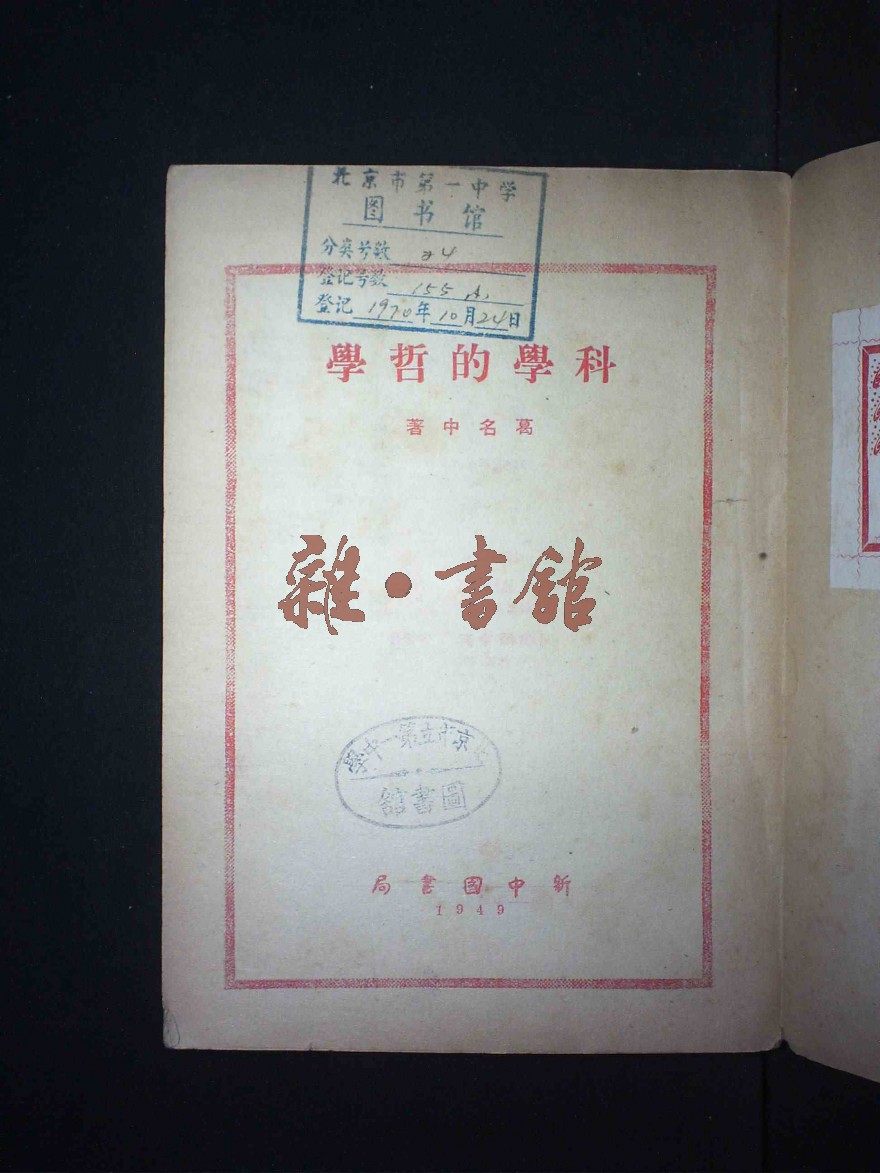 北京市第一中学
图书馆
分类号数 24
登记号数 155
登记 1970年10月24日
科學的哲學
葛名中著
雜·書館
北京市立第一中學
圖書館
新中國書局
1949